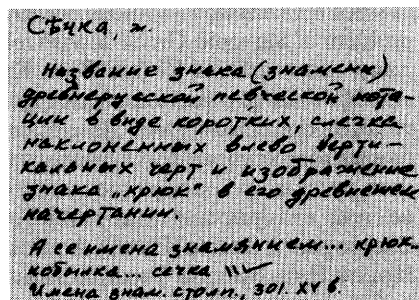 Сѣчка, ж.
Название знака (знамени)
древнерусской певческой нота-
ции в виде коротких, слегка
наклоненных влево верти-
кальных черт и изображение
знака „крюк" в его древнейшем
начертании.
А се имена знамянием... крюк..
кобылка... сечка
Имена знам. столп., 301. XV в.